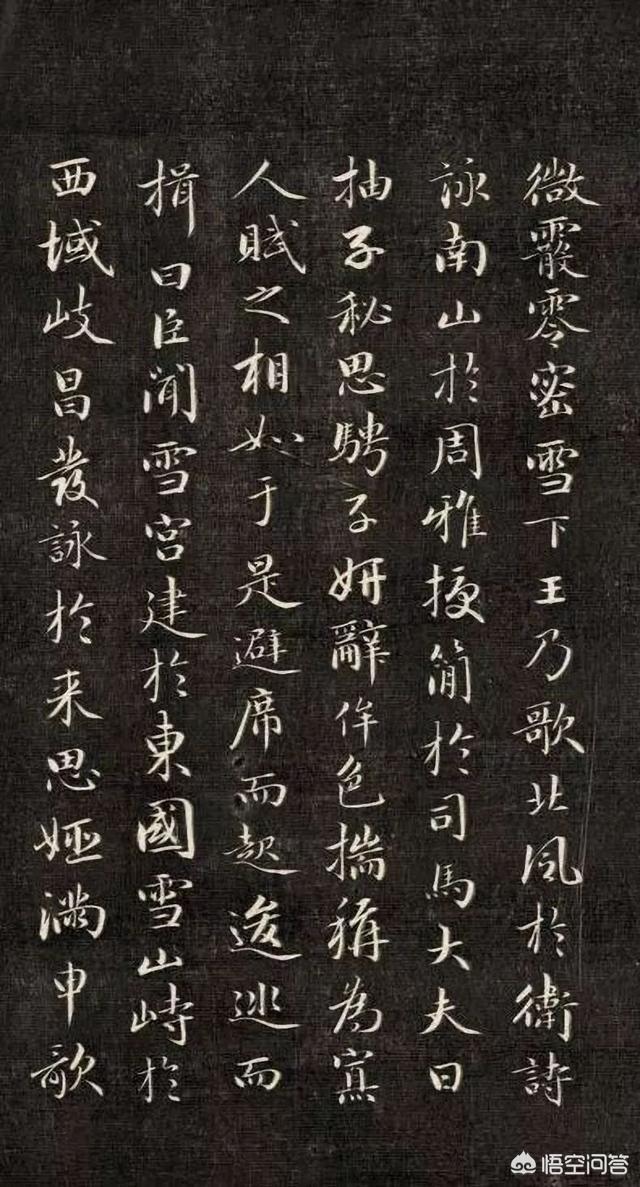 微霰零密雪下王乃歌北风於衛詩
詠南山於周雅授简於司馬大夫曰
抽子秘思騁子妍辭侔色揣稱為寡
人賦之相如于是避席而起逡巡而
揖曰臣聞雪宮建於東國雪山峙於
西域岐昌發詠於来思姬滿申歌
悟空问答